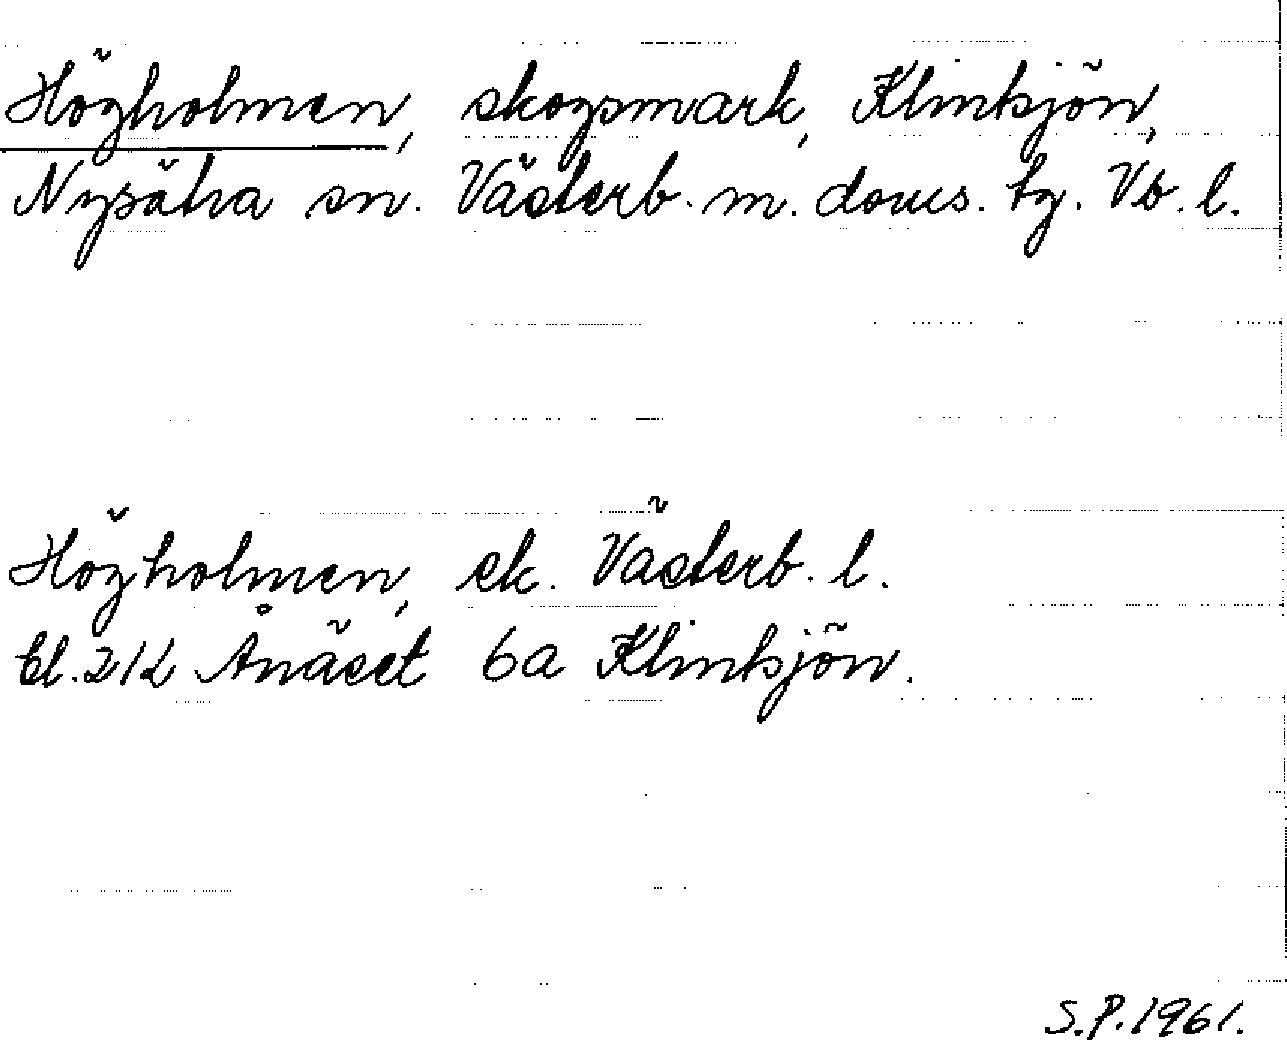 Högholmen, skogsmark, Klintsjön,
Nysätra sn. Västerb. m. doms. tg. Vb. l.
Högholmen, ek. Västerb. l.
bl. 212 Ånäset 6a Klintsjön.
S.P. 1961.